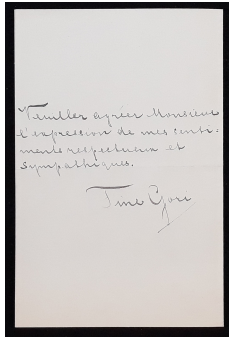 Veuillez agréer Monsieur
l'expression de mes senti-
ments respectueux et
sympathiques.
Gori